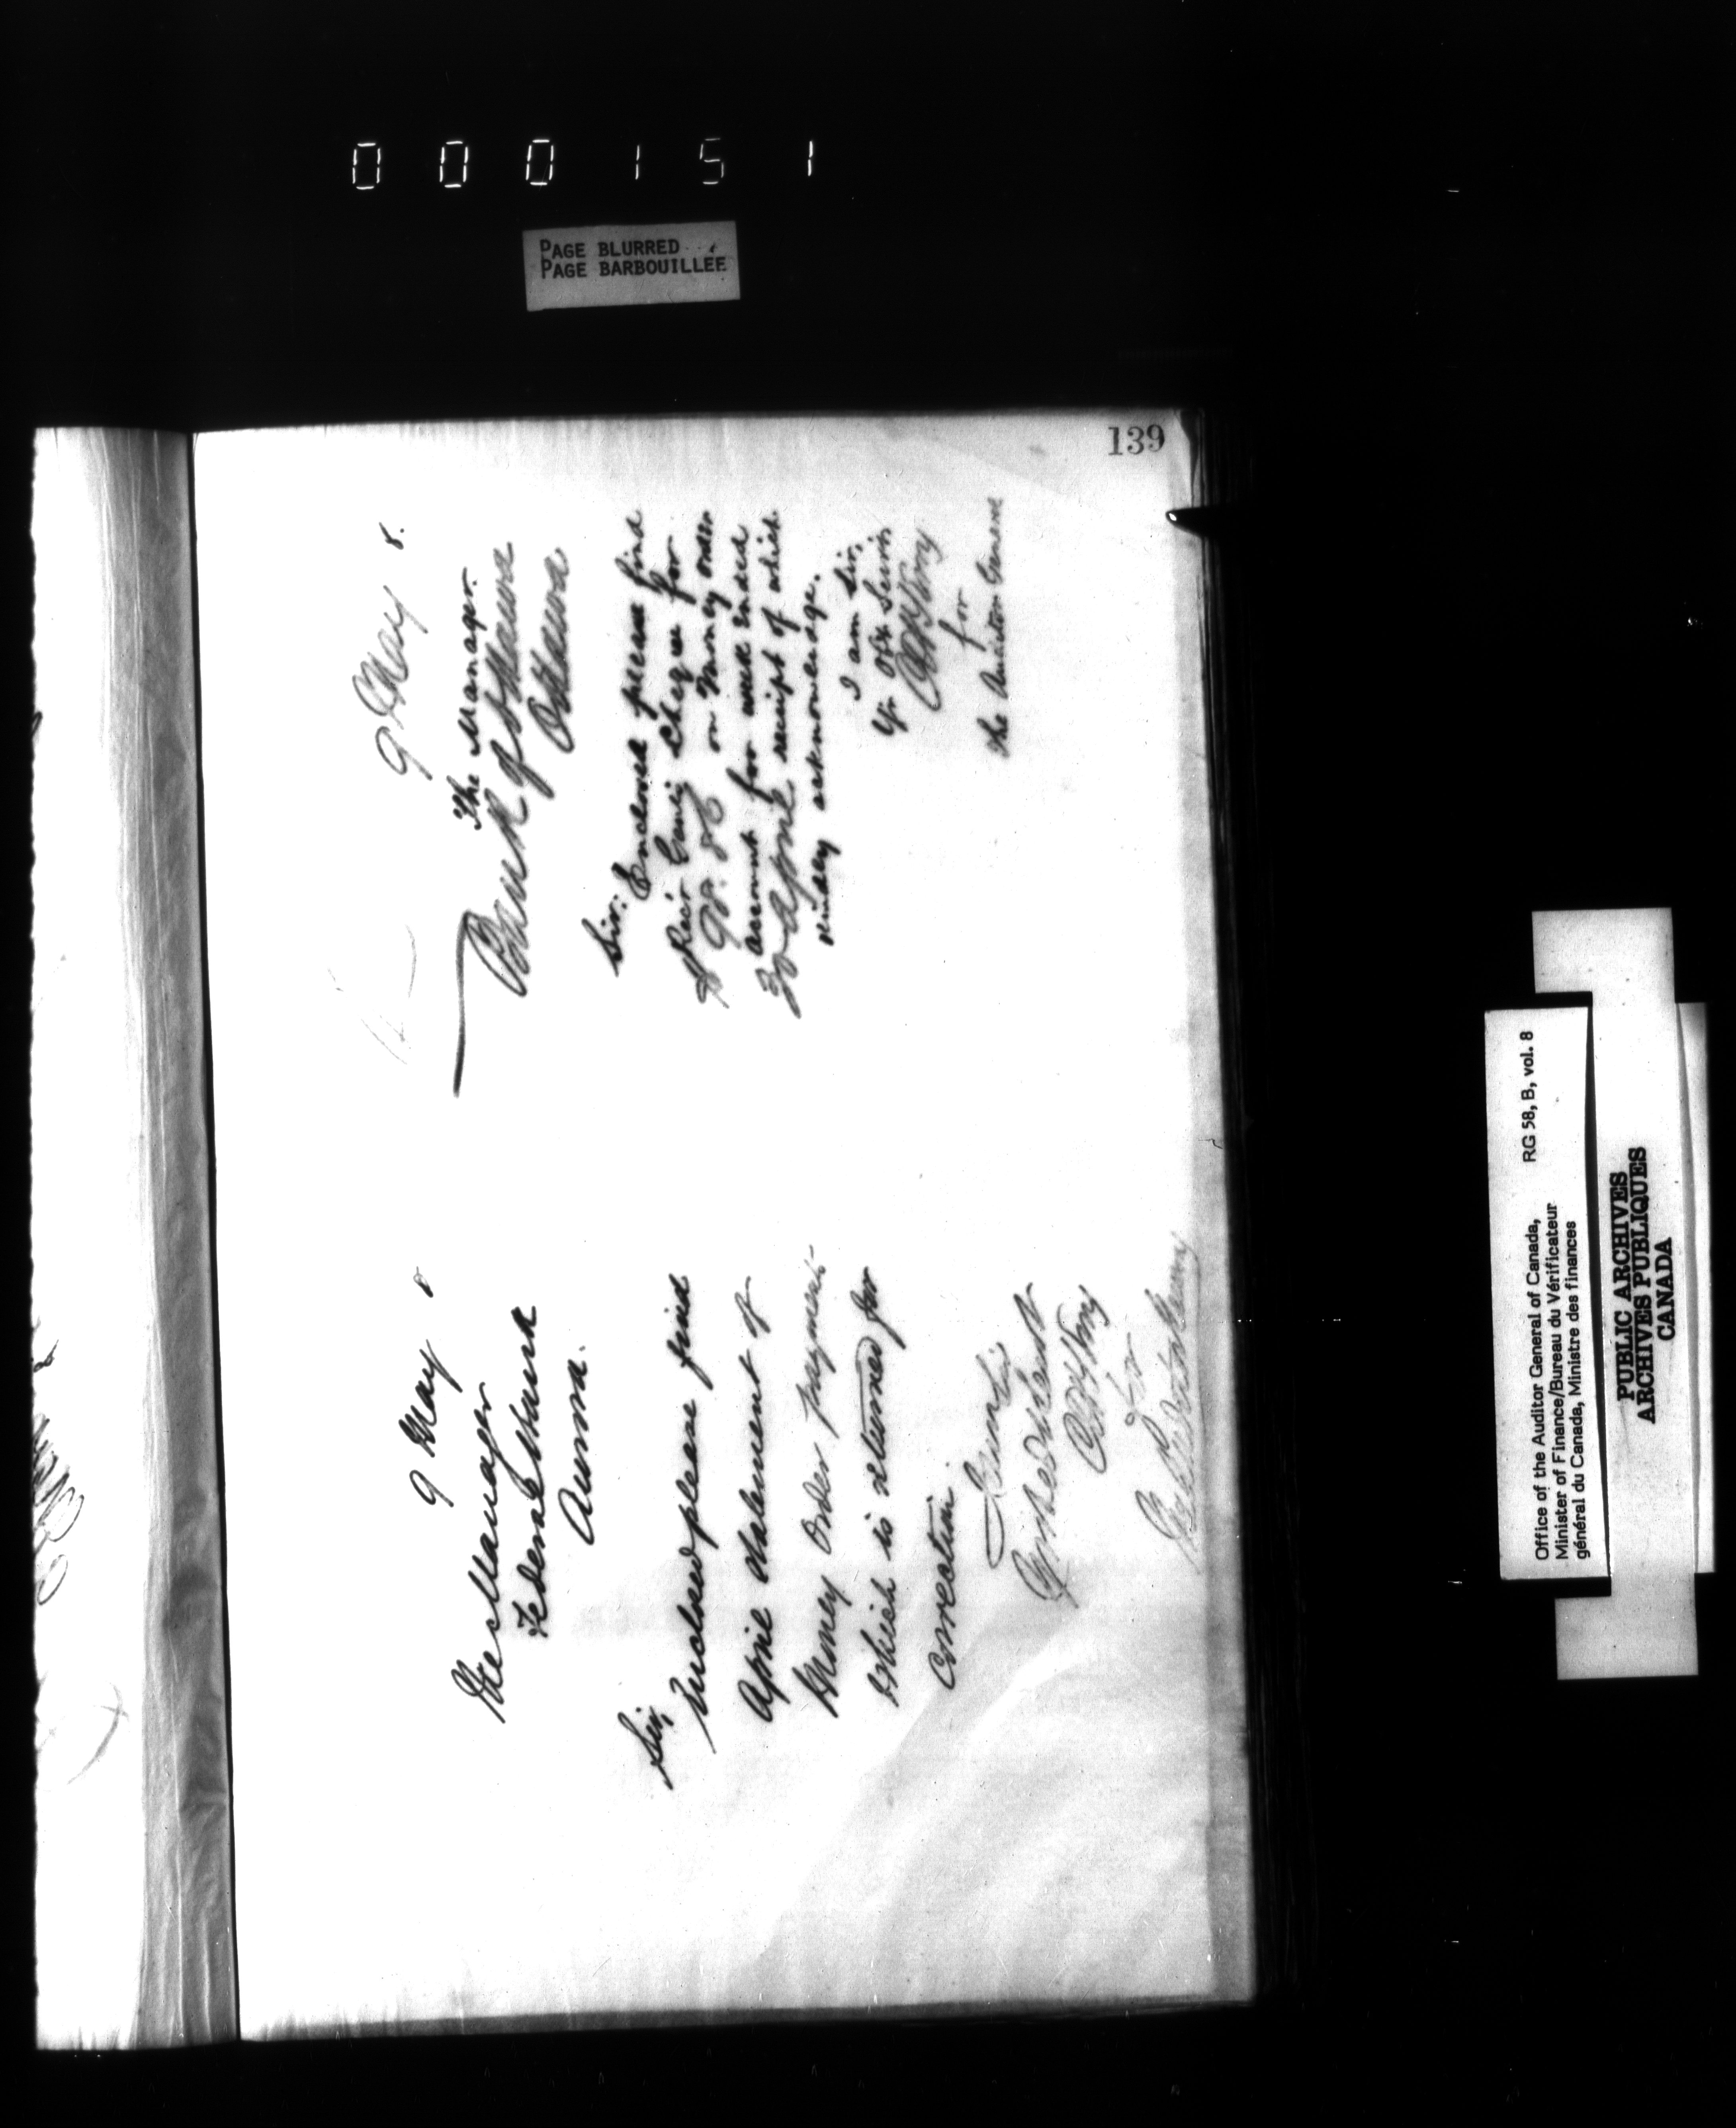 000151
PAGE BLURRED
PAGE BARBOUILLÉE
139
9 May 8
The Manager
Federal Bank
Aurora.
Sir,
Enclosed please find
April Statement of
Money Order payment
which is returned for
correction
for
9 May 8.
The Manager.
Bank of Ottawa
Ottawa
Sir: Enclosed please find
Recr Genl's cheque for
$98.86 on Money order
account for week ended
30 April receipt of which
kindly acknowledge.
I am Sir,
Yr Obt Servt
for
the Auditor General
Office of the Auditor General of Canada, RG 58, B, vol. 8
Minister of Finance/Bureau du Vérificateur
général du Canada, Ministre des finances
PUBLIC ARCHIVES
ARCHIVES PUBLIQUES
CANADA